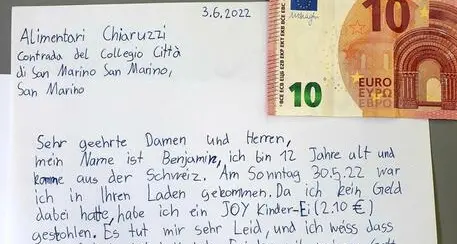 3.6.2022
Alimentari Chiaruzzi
Contrada del Collegio Città
di San Marino San Marino,
San Marino
10
10
EURO
ΕΥΡΩ
ЕВРО
Sehr geehrte Damen und Herren,
mein Name ist Benjamin, ich bin 12 Jahre alt und
komme aus der Schweiz. Am Sonntag 30.5.22 war
ich in Ihren Laden gekommen. Da ich kein Geld
dabei hatte, habe ich ein JOY Kinder-Ei (2.10 €)
gestohlen. Es tut mir sehr Leid, und ich weiss dass